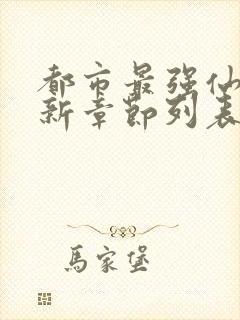 都市最强仙
新章节列表
馬家堡